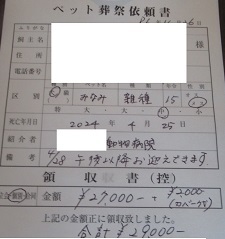 ペット葬祭依頼書
ふりがな
飼主名 様
住所
電話番号
区別 みなみ 雑種 15
特大・大・中・小
死亡年月日 2024年 4月 25日
紹介者 動物病院
備考 4/28 午後以降お迎えできます
領収書(控)
金額 ¥27,000- +2,000-
(カバー代)
上記の金額正に領収致しました。
合計 ¥29,000-